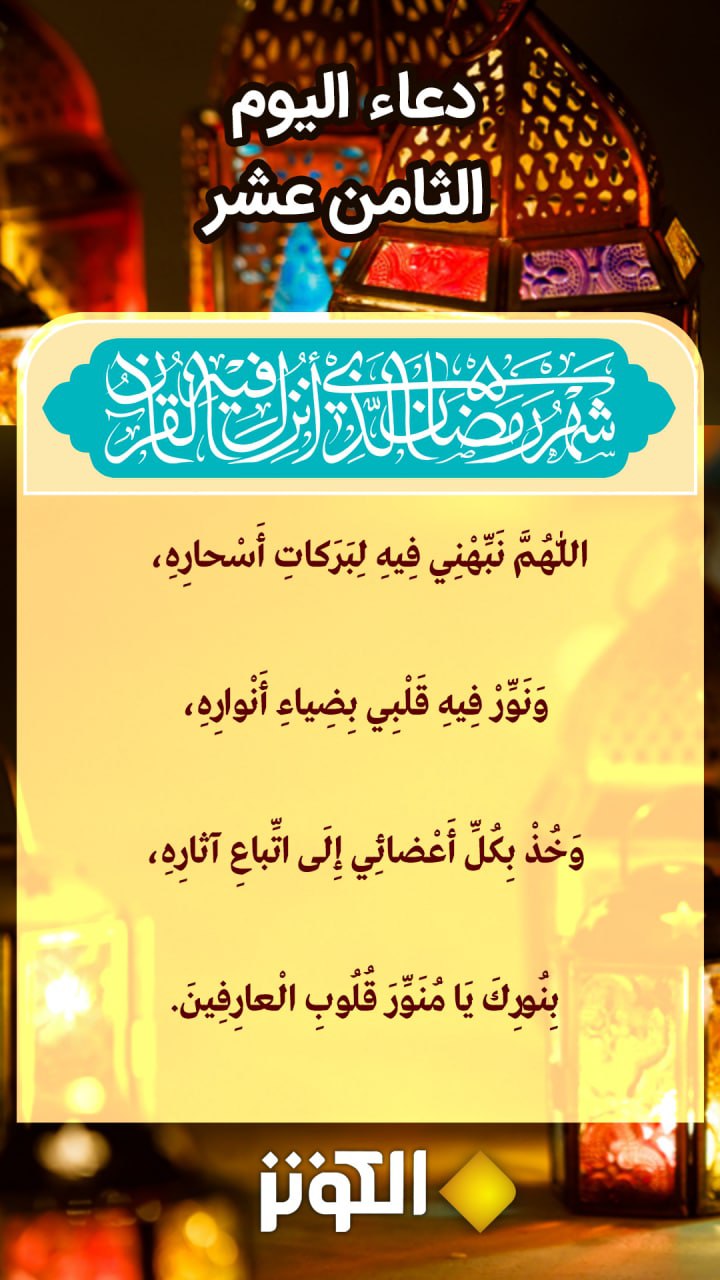 دعاء اليوم
الثامن عشر
شهر رمضان الذي أنزل فيه القرآن
اللّٰهُمَّ نَبِّهْنِي فِيهِ لِبَرَكاتِ أَسْحارِهِ،
وَنَوِّرْ فِيهِ قَلْبِي بِضِياءِ أَنْوارِهِ،
وَخُذْ بِكُلِّ أَعْضائِي إِلَى اتِّباعِ آثارِهِ،
بِنُورِكَ يَا مُنَوِّرَ قُلُوبِ الْعارِفِينَ.
الكوثر